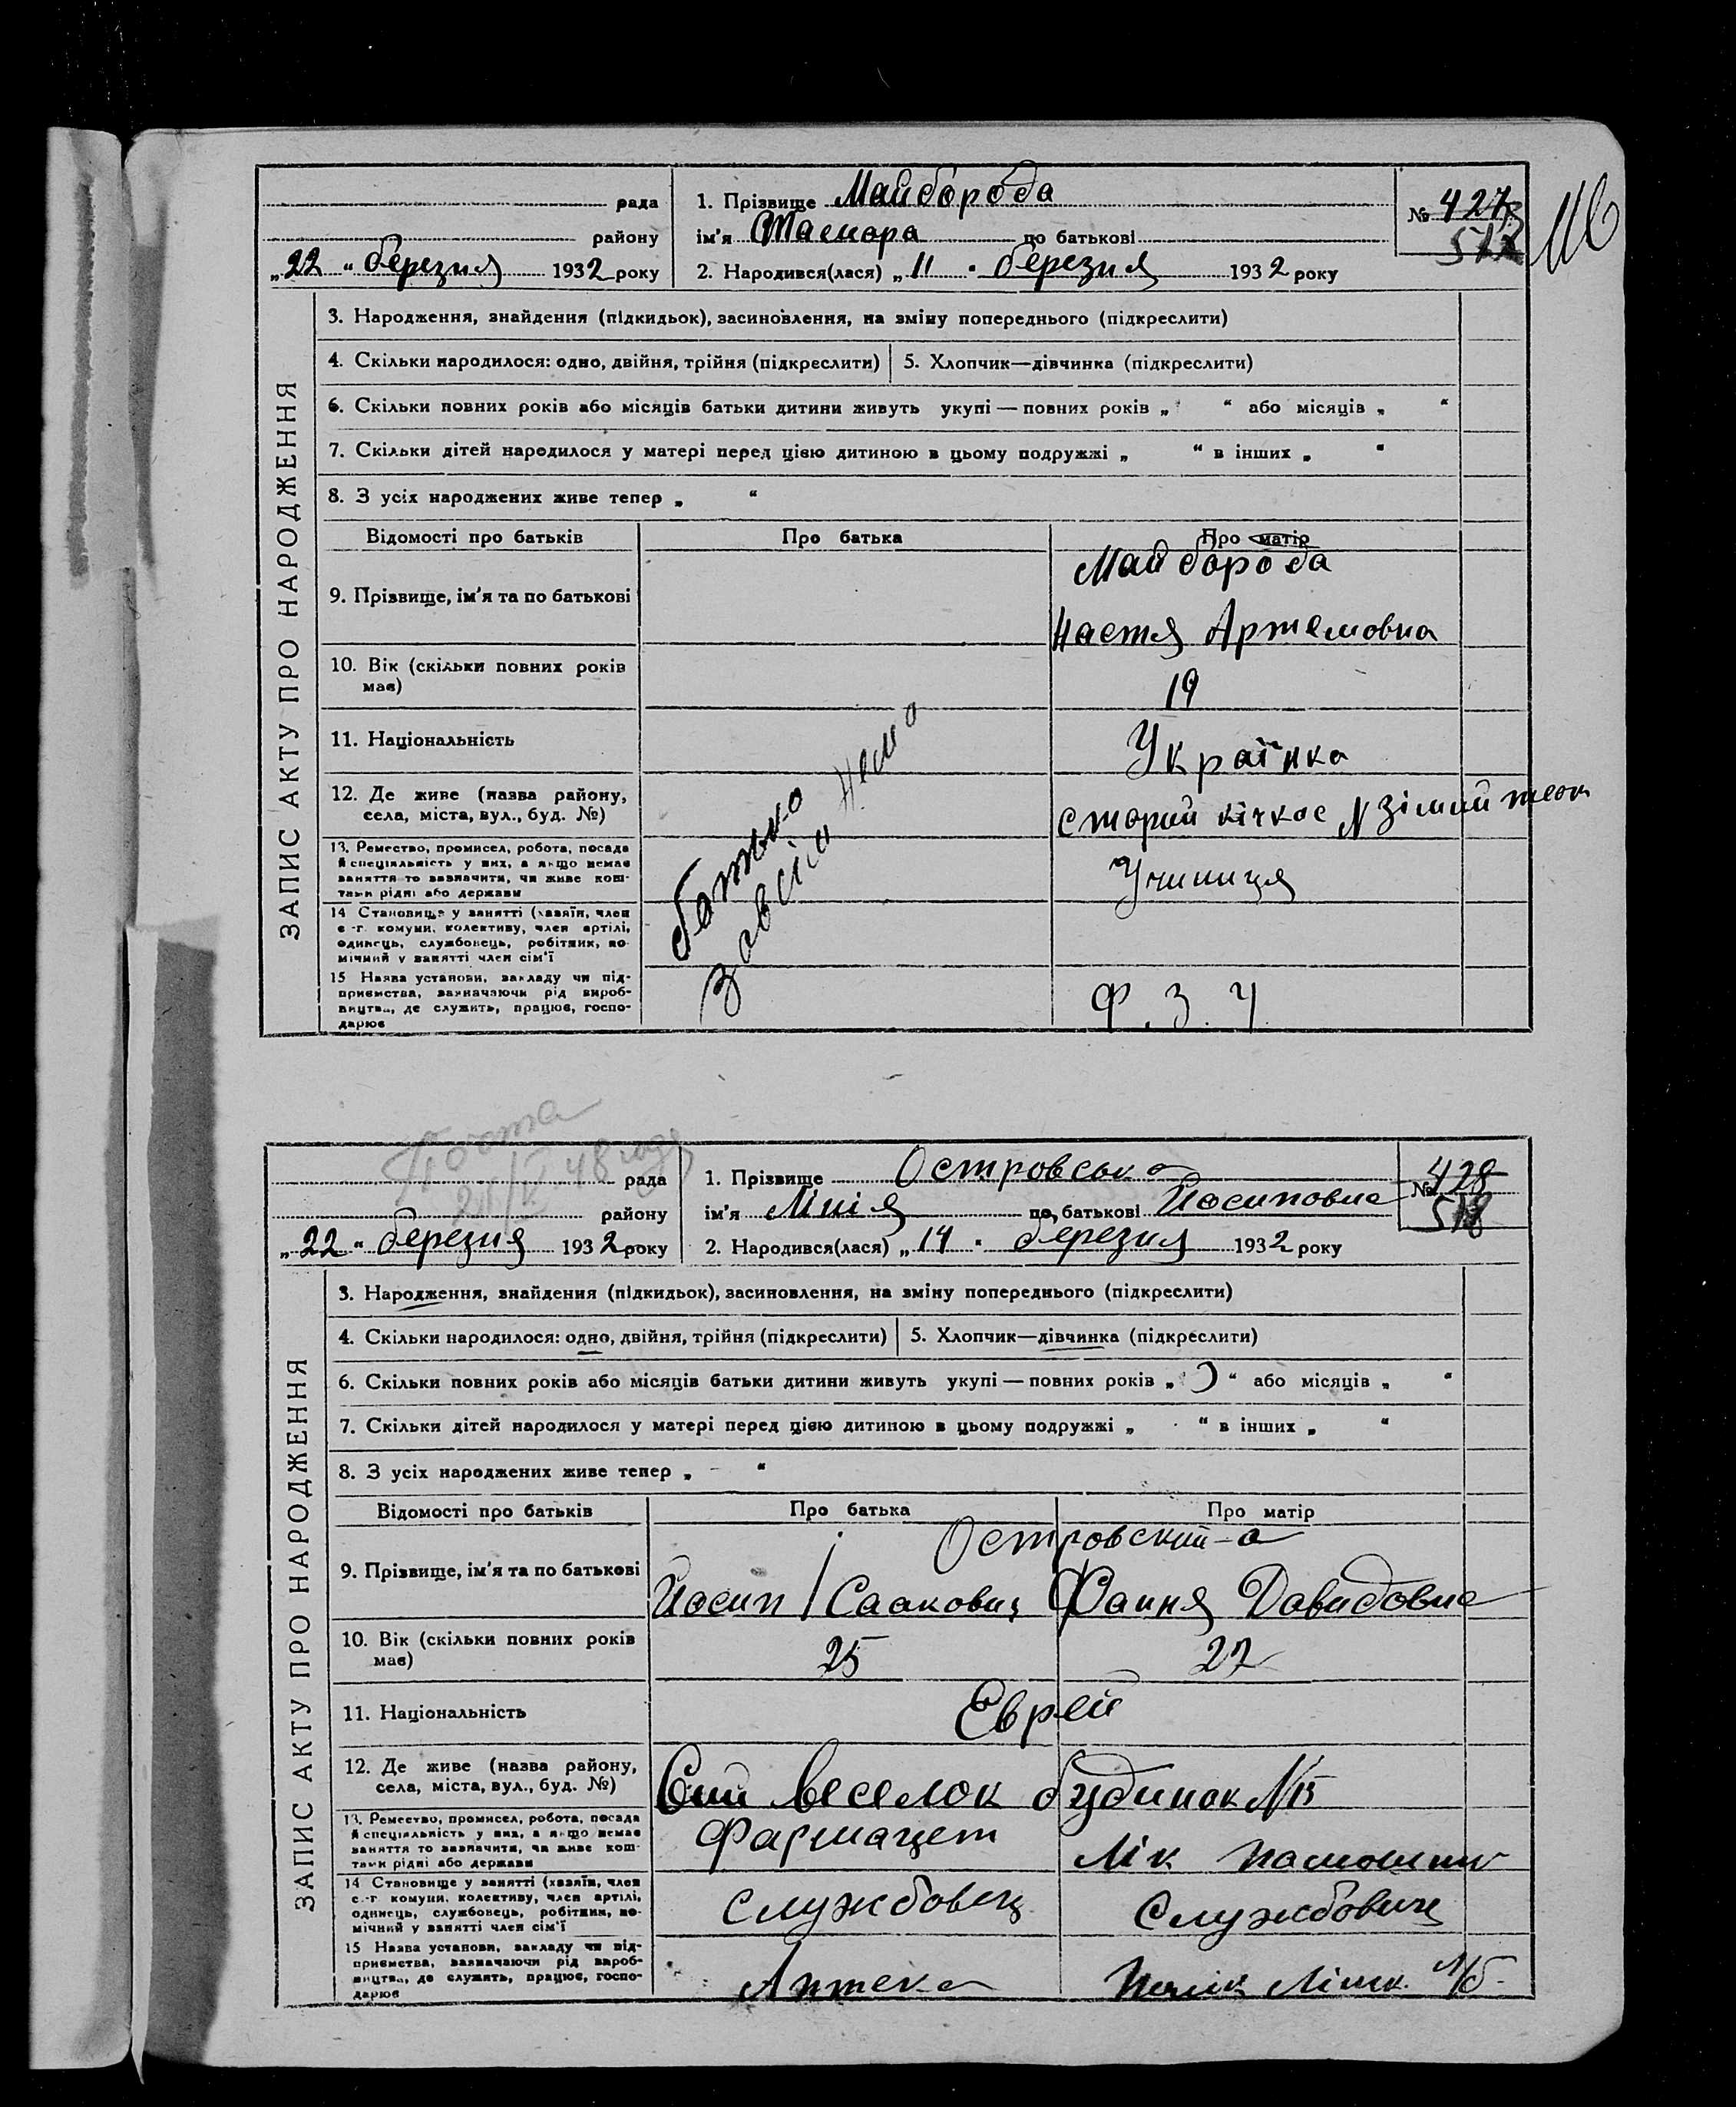 рада
району
„22“ березня 1932 року
1. Прізвище Майборода
ім'я Тамара по батькові
2. Народився(лася) „11“ березня 1932 року
№ 427
517
116
ЗАПИС АКТУ ПРО НАРОДЖЕННЯ
3. Народження, знайдення (підкидьок), засиновлення, на зміну попереднього (підкреслити)
4. Скільки народилося: одно, двійня, трійня (підкреслити) 5. Хлопчик—дівчинка (підкреслити)
6. Скільки повних років або місяців батьки дитини живуть укупі — повних років „ “ або місяців „ “
7. Скільки дітей народилося у матері перед цією дитиною в цьому подружжі „ “ в інших „ “
8. З усіх народжених живе тепер „ “
Відомості про батьків Про батька Про матір
9. Прізвище, ім'я та по батькові
Майборода
Настя Артемовна
10. Вік (скільки повних років
має)
19
11. Національність
Українка
12. Де живе (назва району,
села, міста, вул., буд. №)
Старий кічкас N Зімній
13. Ремество, промисел, робота, посада
й спеціяльність у них, а якщо немає
заняття то зазначити, чи живе кош-
тами рідні або держави
Учиниця
14 Становище у занятті (хазяїн, член
с.-г. комуни, колективу, член артілі,
одинець, службовець, робітник, по-
мічний у занятті член сім'ї
15 Назва установи, закладу чи під-
приємства, зазначаючи рід вироб-
ництва, де служить, працює, госпо-
дарює
Ф. З. У.
Батько
зовсім нема
Пошта
48 году
рада
району
„22“ березня 1932 року
1. Прізвище Островська
ім'я Лінія по батькові Йосиповна
2. Народився(лася) „14“ березня 1932 року
№ 428
518
ЗАПИС АКТУ ПРО НАРОДЖЕННЯ
3. Народження, знайдення (підкидьок), засиновлення, на зміну попереднього (підкреслити)
4. Скільки народилося: одно, двійня, трійня (підкреслити) 5. Хлопчик—дівчинка (підкреслити)
6. Скільки повних років або місяців батьки дитини живуть укупі — повних років „ “ або місяців „ “
7. Скільки дітей народилося у матері перед цією дитиною в цьому подружжі „ “ в інших „ “
8. З усіх народжених живе тепер „ - “
Відомості про батьків Про батька Про матір
9. Прізвище, ім'я та по батькові
Островский-а
Йосип Ісаакович Фаиня Давидовна
10. Вік (скільки повних років
має)
25 22
11. Національність
Еврей
12. Де живе (назва району,
села, міста, вул., буд. №)
6ий веселок будинок N 15
13. Ремество, промисел, робота, посада
й спеціяльність у них, а якщо немає
заняття то зазначити, чи живе кош-
тами рідні або держави
Фармацет Лік помошник
14 Становище у занятті (хазяїн, член
с.-г. комуни, колективу, член артілі,
одинець, службовець, робітник, по-
мічний у занятті член сім'ї
Службовец Службовиця
15 Назва установи, закладу чи під-
приємства, зазначаючи рід вироб-
ництва, де служить, працює, госпо-
дарює
Аптека